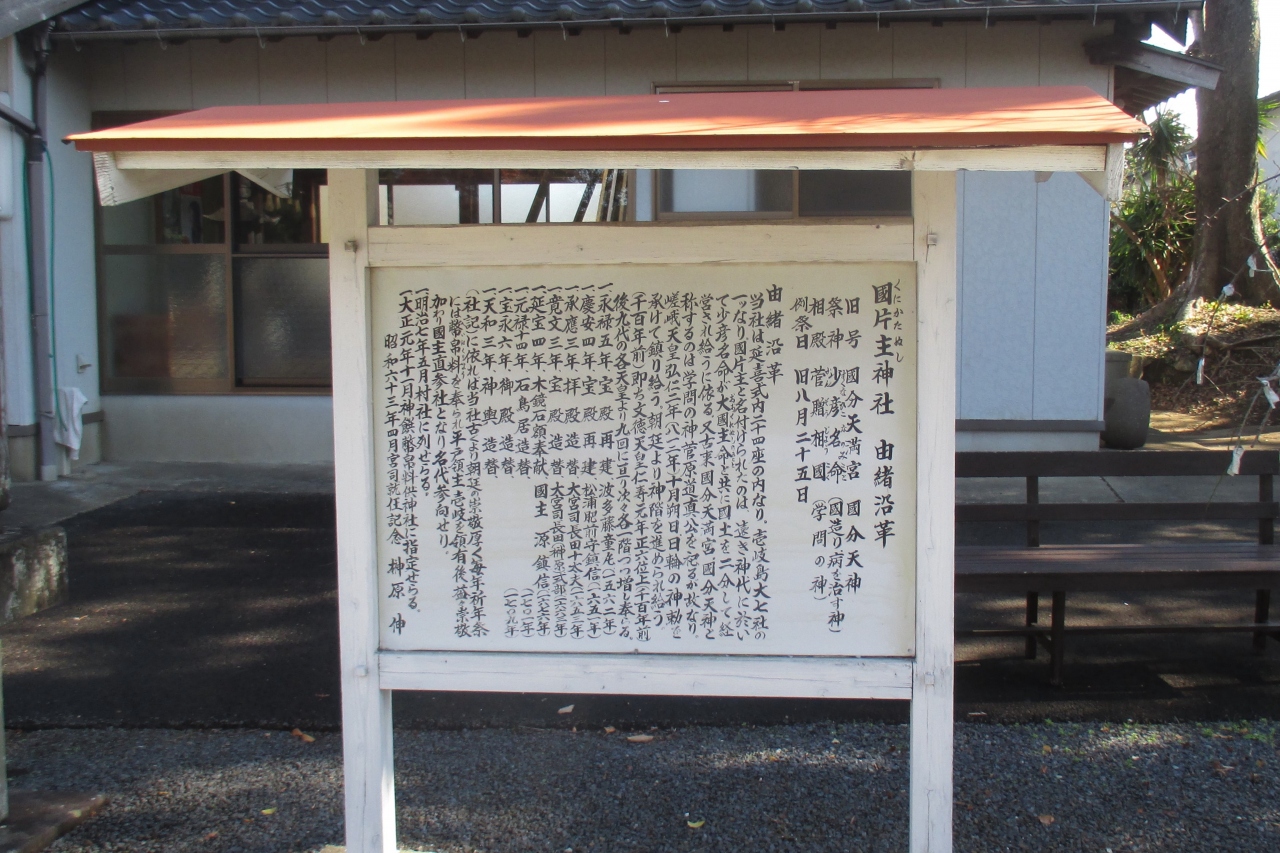 くにかたぬし
國片主神社　由緒沿革
旧号　國分天満宮　國分天神
祭神　少彦名命　(国造り病を治す神)
相殿　菅贈相國　(学問の神)
例祭日　旧八月二十五日
由緒沿革
当社は延喜式内二十四座の内なり。壱岐島大七社の
一なり國片主と名付けられたのは遠き神代に於い
て少彦名命が大國主命と共に國土を二分して経
営され給うに依る又古来國分天満宮國分天神と
称するのは学問の神菅原道真公を祀るか故なり、
嵯峨天皇弘仁二年(八一一年)十月朔日日輪の神勅を
承けて鎮り給う、朝廷より神階を進められ給う
(千百年前)即ち文徳天皇仁寿元年正六位上千百年前
後九代の各天皇より九回に亘り次々各一階づつ増し奉くる。
一永禄五年宝殿再建　波多藤童丸(一五六二年)
一慶安四年宝殿再建　松浦肥前守鎮信(一六五一年)
一承應三年拝殿造替　大宮司長田十太夫(一六五三年)
一寛文三年宝殿造替　大宮司長田榊原式部(一六六三年)
一延宝四年木鏡石額奉献　國主源鎮信(一六七六年)
一元禄十四年石鳥居造替　(一七〇一年)
一宝永六年御殿造替　(一七〇九年)
一天和三年神輿造替
(社記)に依れは当社古より朝廷の崇敬厚く毎年祈年祭
には幣帛料を奉られ平戸領主壱岐を領有後、益々崇敬
加わり國主直参社となり名代参向せり。
一明治七年五月村社に列せらる。
一大正元年十一月神饌幣帛料供神社に指定せらる。
昭和六十三年四月宮司就任記念　榊原　伸